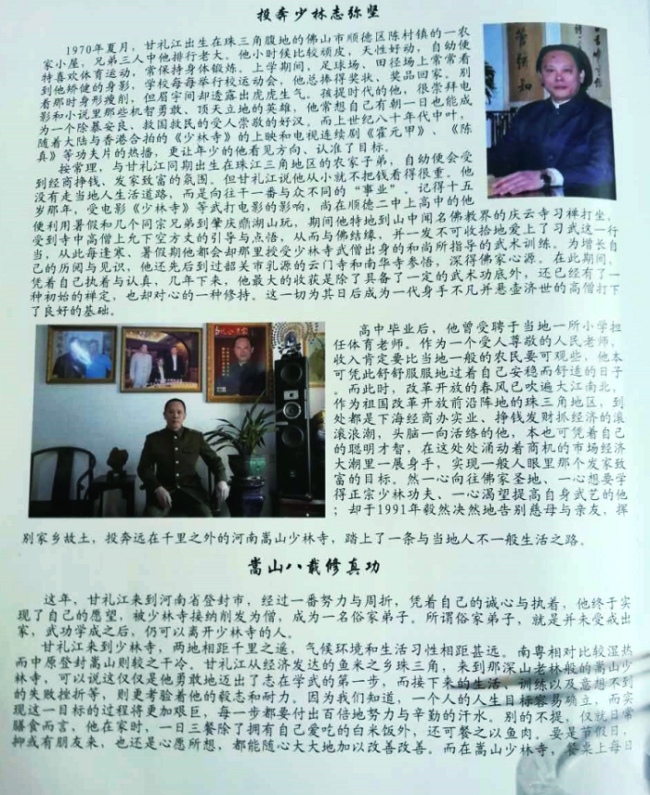 投奔少林志弥坚
1970年夏月，甘礼江出生在珠三角腹地的佛山市顺德区陈村镇的一农
家小屋，兄弟三人中他排行老大。他小时候比较顽皮，天性好动，自幼便
特喜欢体育运动，常保持身体锻炼。上学期间，足球场、田径场上常常看
到他矫健的身影，学校每每举行校运动会，他总捧得奖状、奖品回家。别
看那时身形瘦削，但眉宇间却透露出虎虎生气。孩提时代的他，很崇拜电
影和小说里那些机智勇敢、顶天立地的英雄，他常想自己有朝一日也能成
为一个除暴安良、救国救民的受人崇敬的好汉。而上世纪八十年代中叶，
随着大陆与香港合拍的《少林寺》的上映和电视连续剧《霍元甲》、《陈
真》等功夫片的热播，更让年少的他看见方向、认准了目标。
按常理，与甘礼江同期出生在珠江三角地区的农家子弟，自幼便会受
到经商挣钱、发家致富的氛围，但甘礼江说他从小就不把钱看得很重。他
没有走当地人生活道路，而是向往干一番与众不同的“事业”，记得十五
岁那年，受电影《少林寺》等武打电影的影响，尚在顺德二中上高中的他
便利用暑假和几个同宗兄弟到肇庆鼎湖山玩，期间他特地到山中闻名佛教界的庆云寺习禅打坐，
受到寺中高僧上允下空方丈的引导与点悟，从而与佛结缘，并一发不可收拾地爱上了习武这一行
当，从此每逢寒、暑假期他都会却那里授受少林寺武僧出身的和尚所指导的武术训练。为增长自
己的历阅与见识，他还先后到过韶关市乳源的云门寺和南华寺参悟，深得佛家心源。在此期间，
凭着自己执着与认真，几年下来，他最大的收获是除了具备了一定的武术功底外，还已经有了一
种初始的禅定，也却对心的一种修持。这一切为其日后成为一代身手不凡并悬壶济世的高僧打下
了良好的基础。
高中毕业后，他曾受聘于当地一所小学担
任体育老师。作为一个受人尊敬的人民老师，
收入肯定要比当地一般的农民要可观些，他本
可凭此舒舒服服地过着自己安稳而舒适的日子
。而此时，改革开放的春风已吹遍大江南北，
作为祖国改革开放前沿阵地的珠三角地区，到
处都是下海经商办实业、挣钱发财抓经济的滚
滚浪潮，头脑一向活络的他，本也可凭着自己
的聪明才智，在这处处涌动着商机的市场经济
大潮里一展身手，实现一般人眼里那个发家致
富的目标。然一心向往佛家圣地、一心想要学
得正宗少林功夫、一心渴望提高自身武艺的他
；却于1991年毅然决然地告别慈母与亲友，挥
别家乡故土，投奔远在千里之外的河南嵩山少林寺，踏上了一条与当地人不一般生活之路。
嵩山八载修真功
这年，甘礼江来到河南省登封市，经过一番努力与周折，凭着自己的诚心与执着，他终于实
现了自己的愿望，被少林寺接纳削发为僧，成为一名俗家弟子。所谓俗家弟子，就是并未受戒出
家，武功学成之后，仍可以离开少林寺的人。
甘礼江来到少林寺，两地相距千里之遥，气候环境和生活习性相距甚远。南粤相对比较湿热
而中原登封嵩山则较之干冷。甘礼江从经济发达的鱼米之乡珠三角，来到那深山老林般的嵩山少
林寺，可以说这仅仅是他勇敢地迈出了志在学武的第一步，而接下来的生活、训练以及意想不到
的失败挫折等，则更考验着他的毅志和耐力。因为我们知道，一个人的人生目标容易确立，而实
现这一目标的过程将更加艰巨，每一步都要付出百倍地努力与辛勤的汗水。别的不提，仅就日常
膳食而言，他在家时，一日三餐除了拥有自己爱吃的白米饭外，还可餐之以鱼肉。要是节假日，
抑或有朋友来，也还是心愿所想，都能随心大大地加以改善改善。而在嵩山少林寺，餐桌上每日